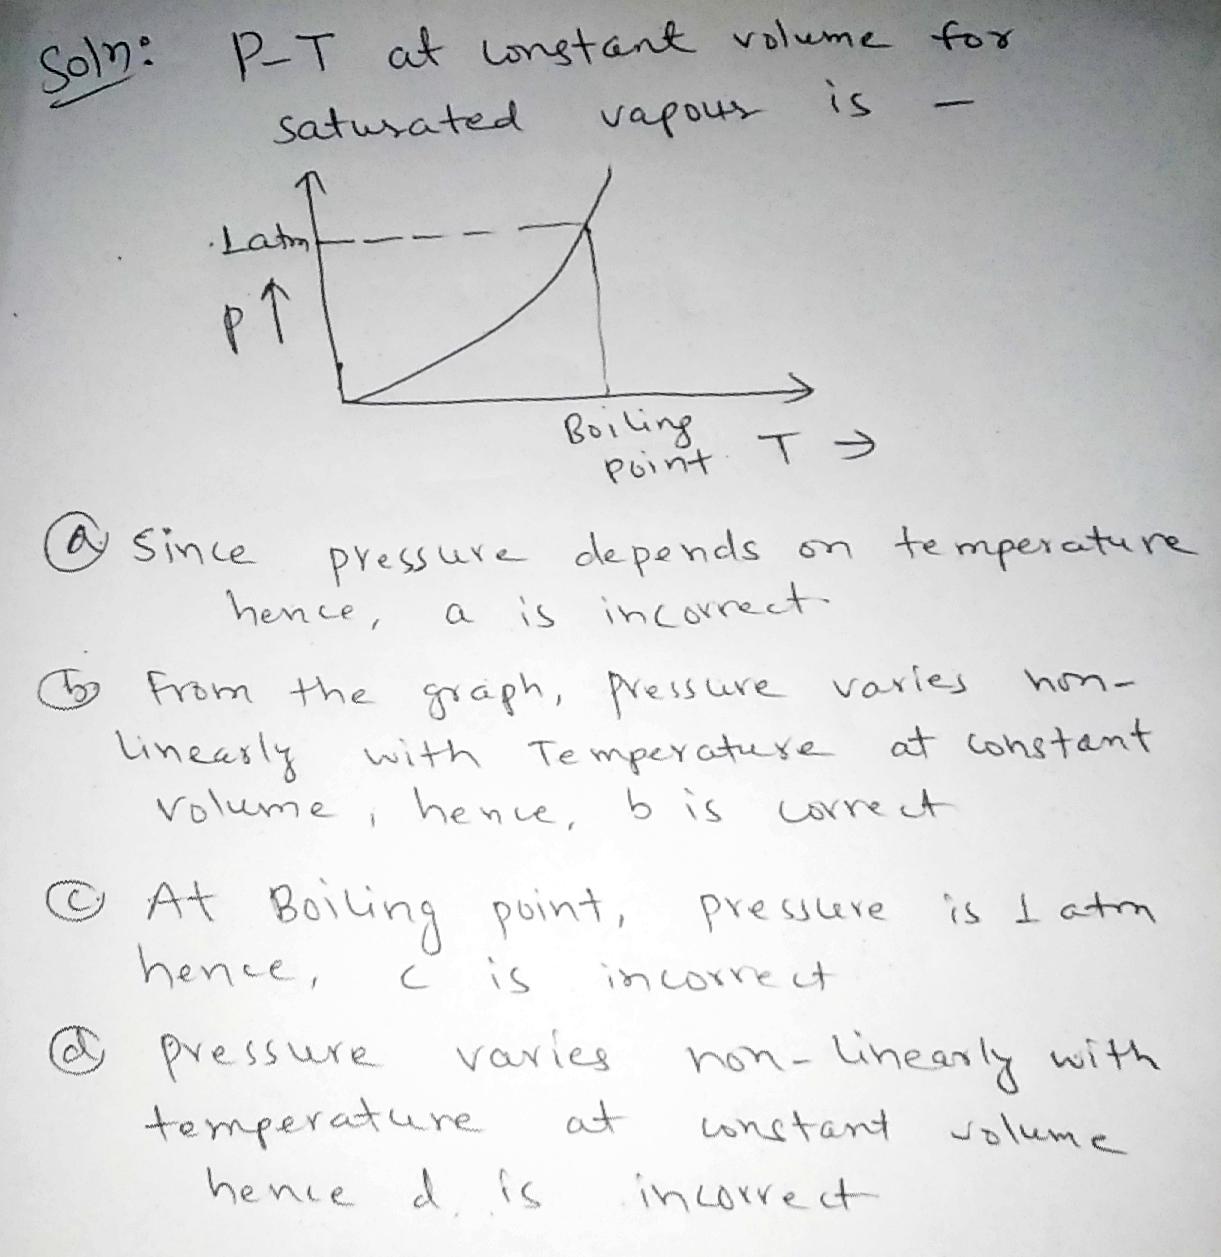 Soln: P-T at constant volume for
saturated vapour is -
1 atm
P ↑
Boiling
point T →
(a) Since pressure depends on temperature
hence, a is incorrect.
(b) From the graph, pressure varies non-
linearly with Temperature at constant
volume, hence, b is correct
(c) At Boiling point, pressure is 1 atm
hence, c is incorrect
(d) pressure varies non-linearly with
temperature at constant volume
hence d is incorrect